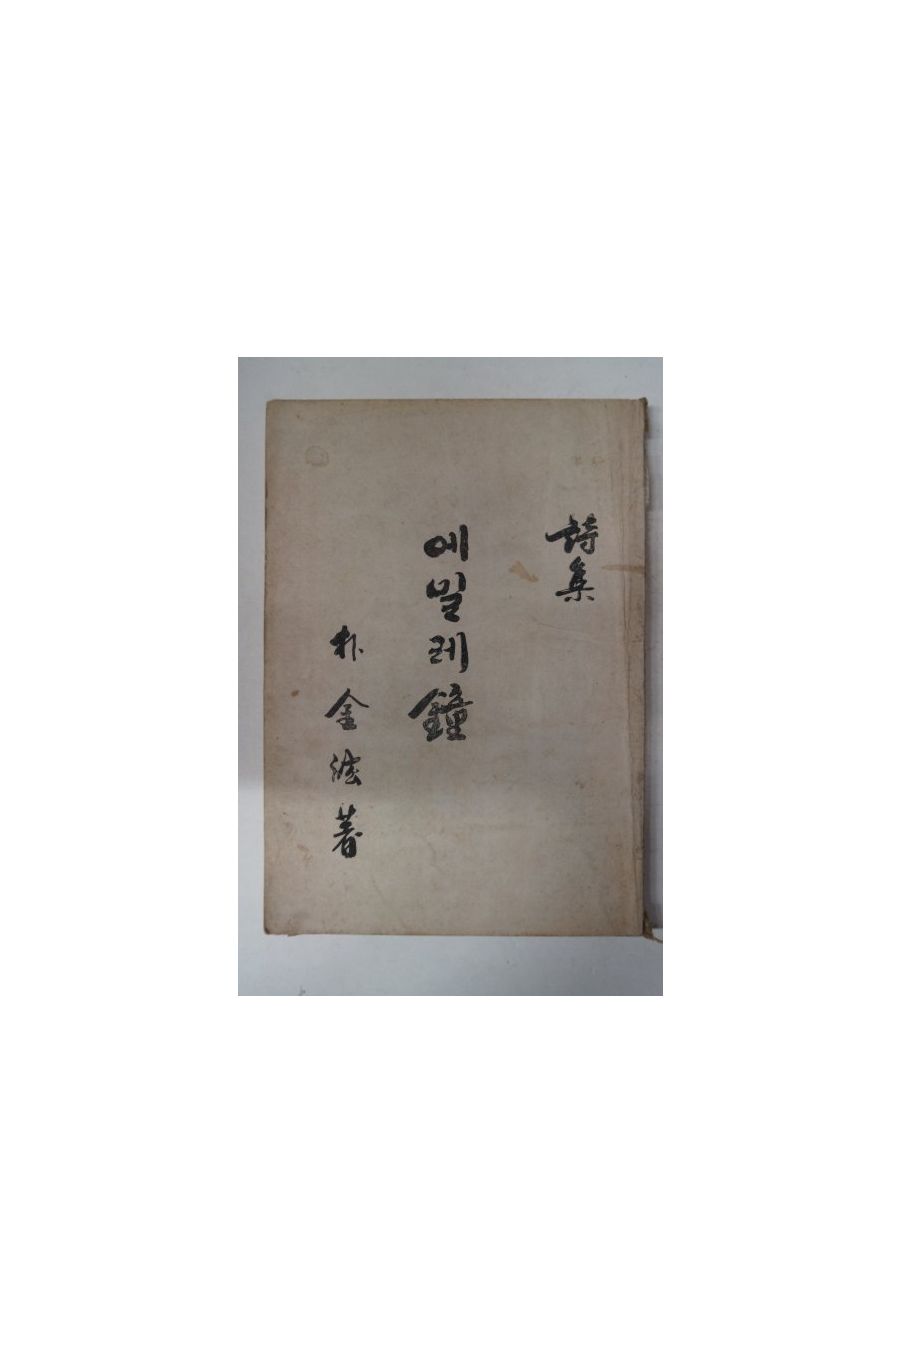 詩集
에밀레鐘
朴金浤著